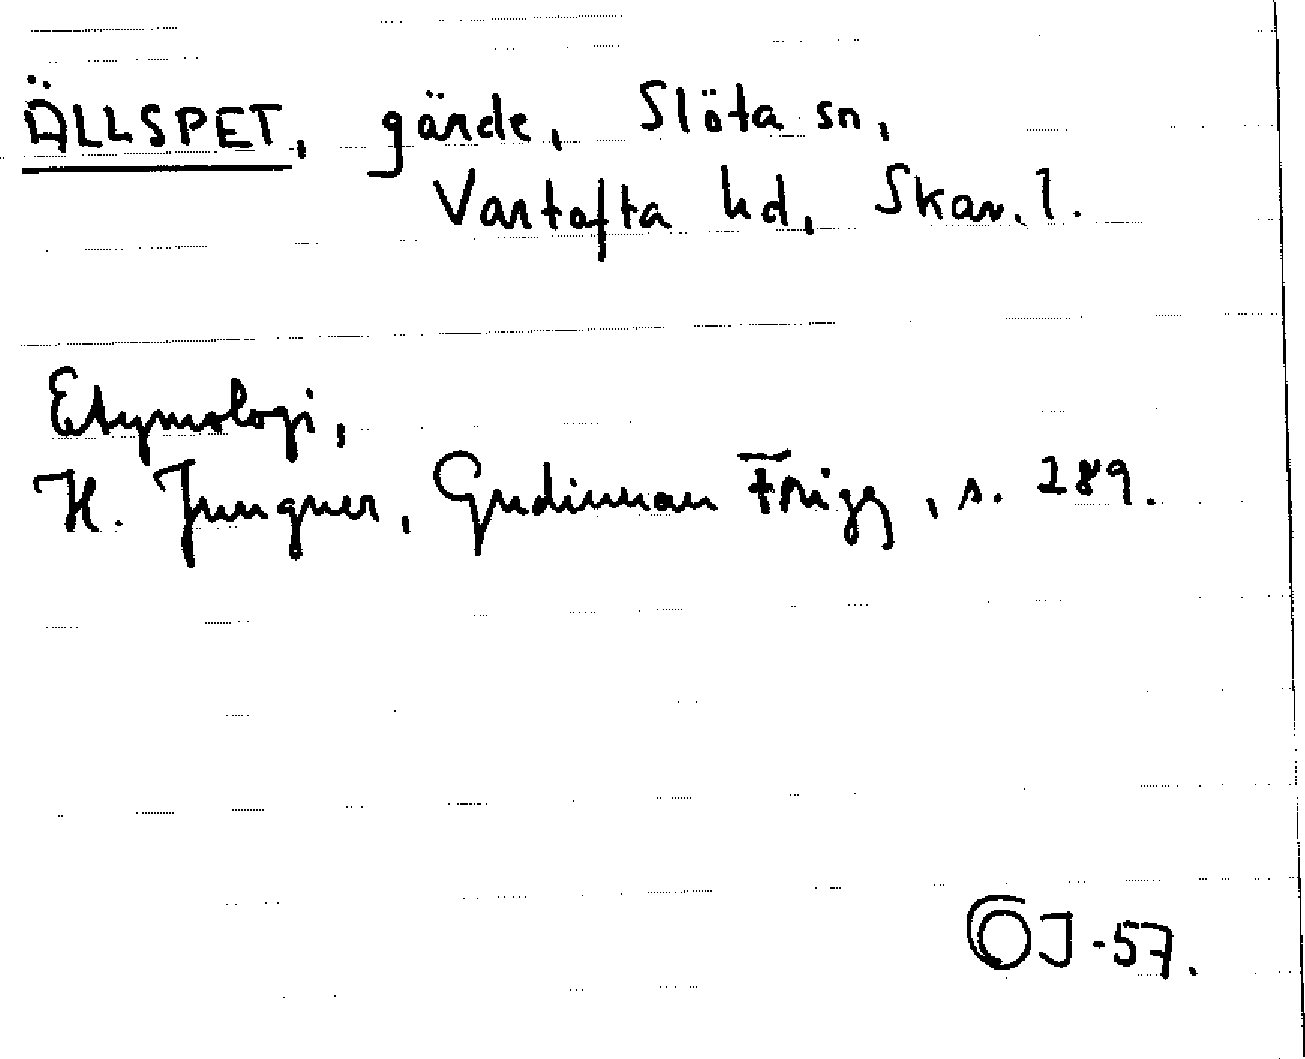 ÄLLSPET, gärde, Slöta sn,
Vartofta hd, Skar. l.
Etymologi,
H. Jungner, Gudinnan Frigg, s. 289.
COJ-57.